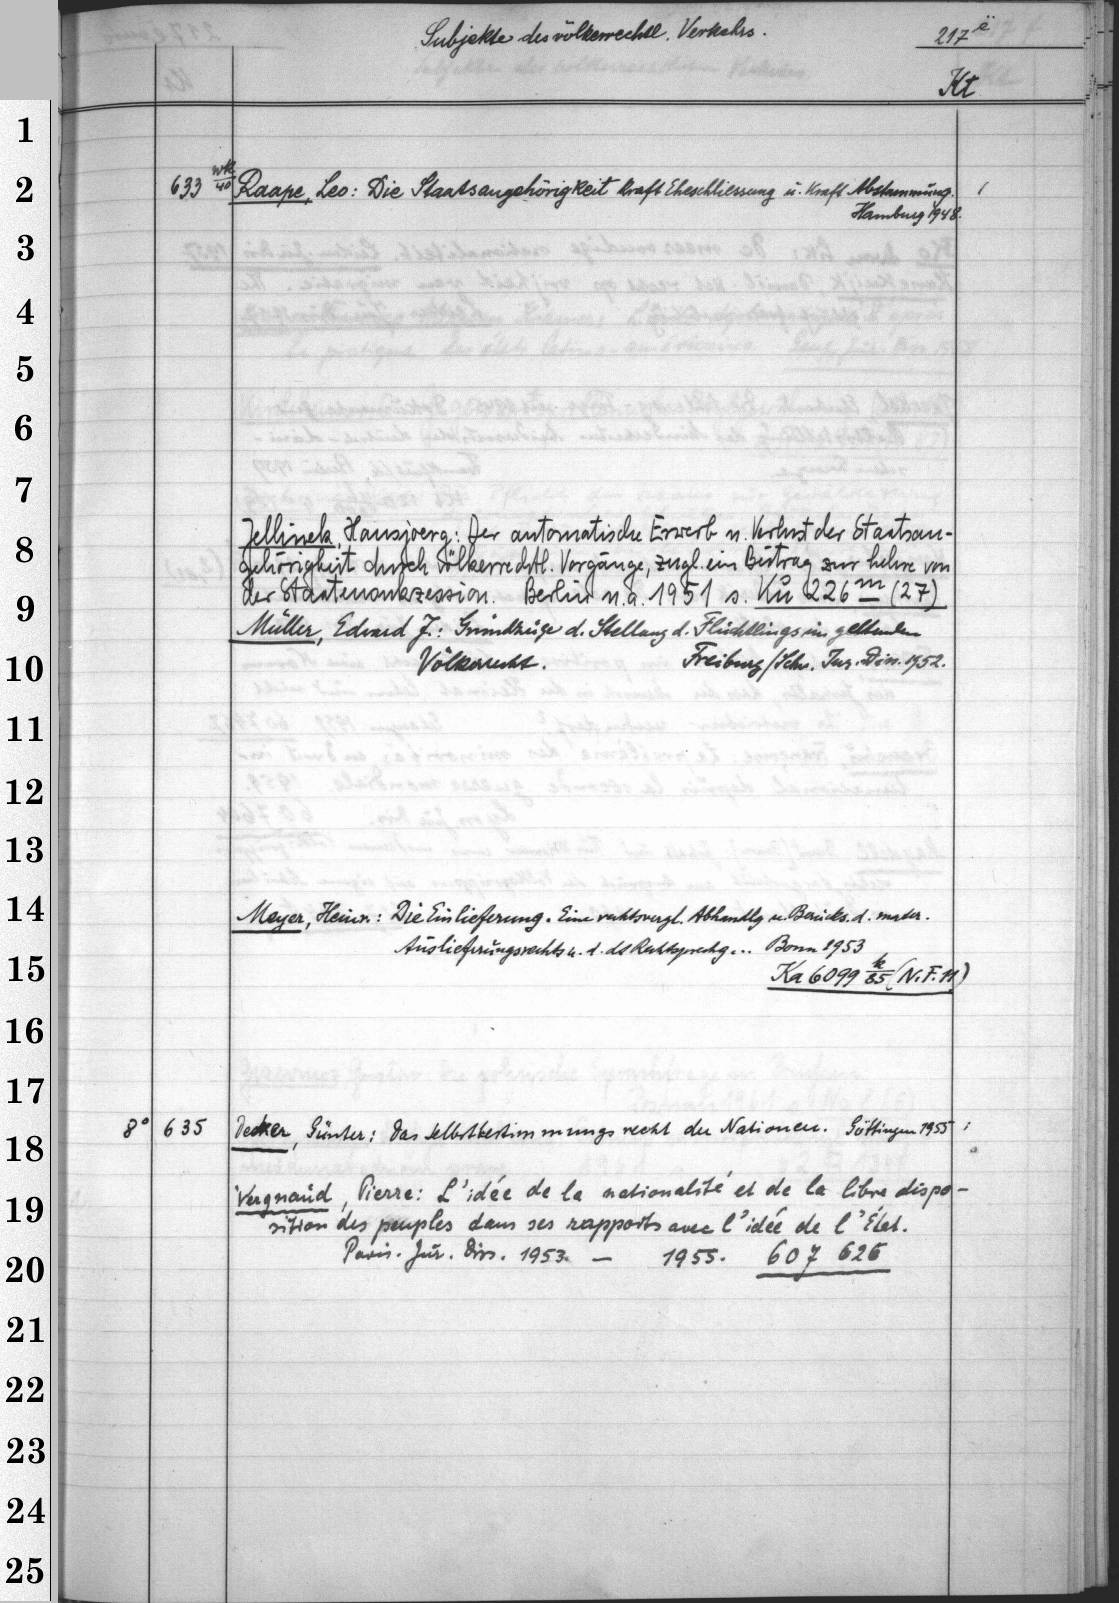 Subjekte des völkerrechtl. Verkehrs.
217 ë
Kt
1
2
633 wk/40 Raape, Leo: Die Staatsangehörigkeit kraft Eheschliessung u. kraft Abstammung.
Hamburg 1948.
3
4
5
6
7
Jellinek, Hansjoerg: Der automatische Erwerb u. Verlust der Staatsan-
8
gehörigkeit durch völkerrechtl. Vorgänge, zugl. ein Beitrag zur Lehre von
der Staatensukzession. Berlin u.a. 1951 s. Kü 226 m (27)
9
Müller, Edvard J.: Grundzüge d. Stellung d. Flüchtlings im geltenden
10
Völkerrecht. Freiburg/Schw. Jur. Diss. 1952.
11
12
13
14
Meyer, Heinr.: Die Einlieferung. Eine rechtsvergl. Abhandlg u. Berücks. d. mater.
Auslieferungsrechts u. d. dt Rechtsprechg... Bonn 1953
15
Ka 6099 k/85 (N.F. 11)
16
17
8° 635 Decker, Günter: Das Selbstbestimmungsrecht der Nationen. Göttingen 1955
18
19
Vergnaud, Pierre: L'idée de la nationalité et de la libre dispo-
sition des peuples dans ses rapports avec l'idée de l'État.
20
Paris. Jur. Diss. 1953. — 1955. 607 626
21
22
23
24
25